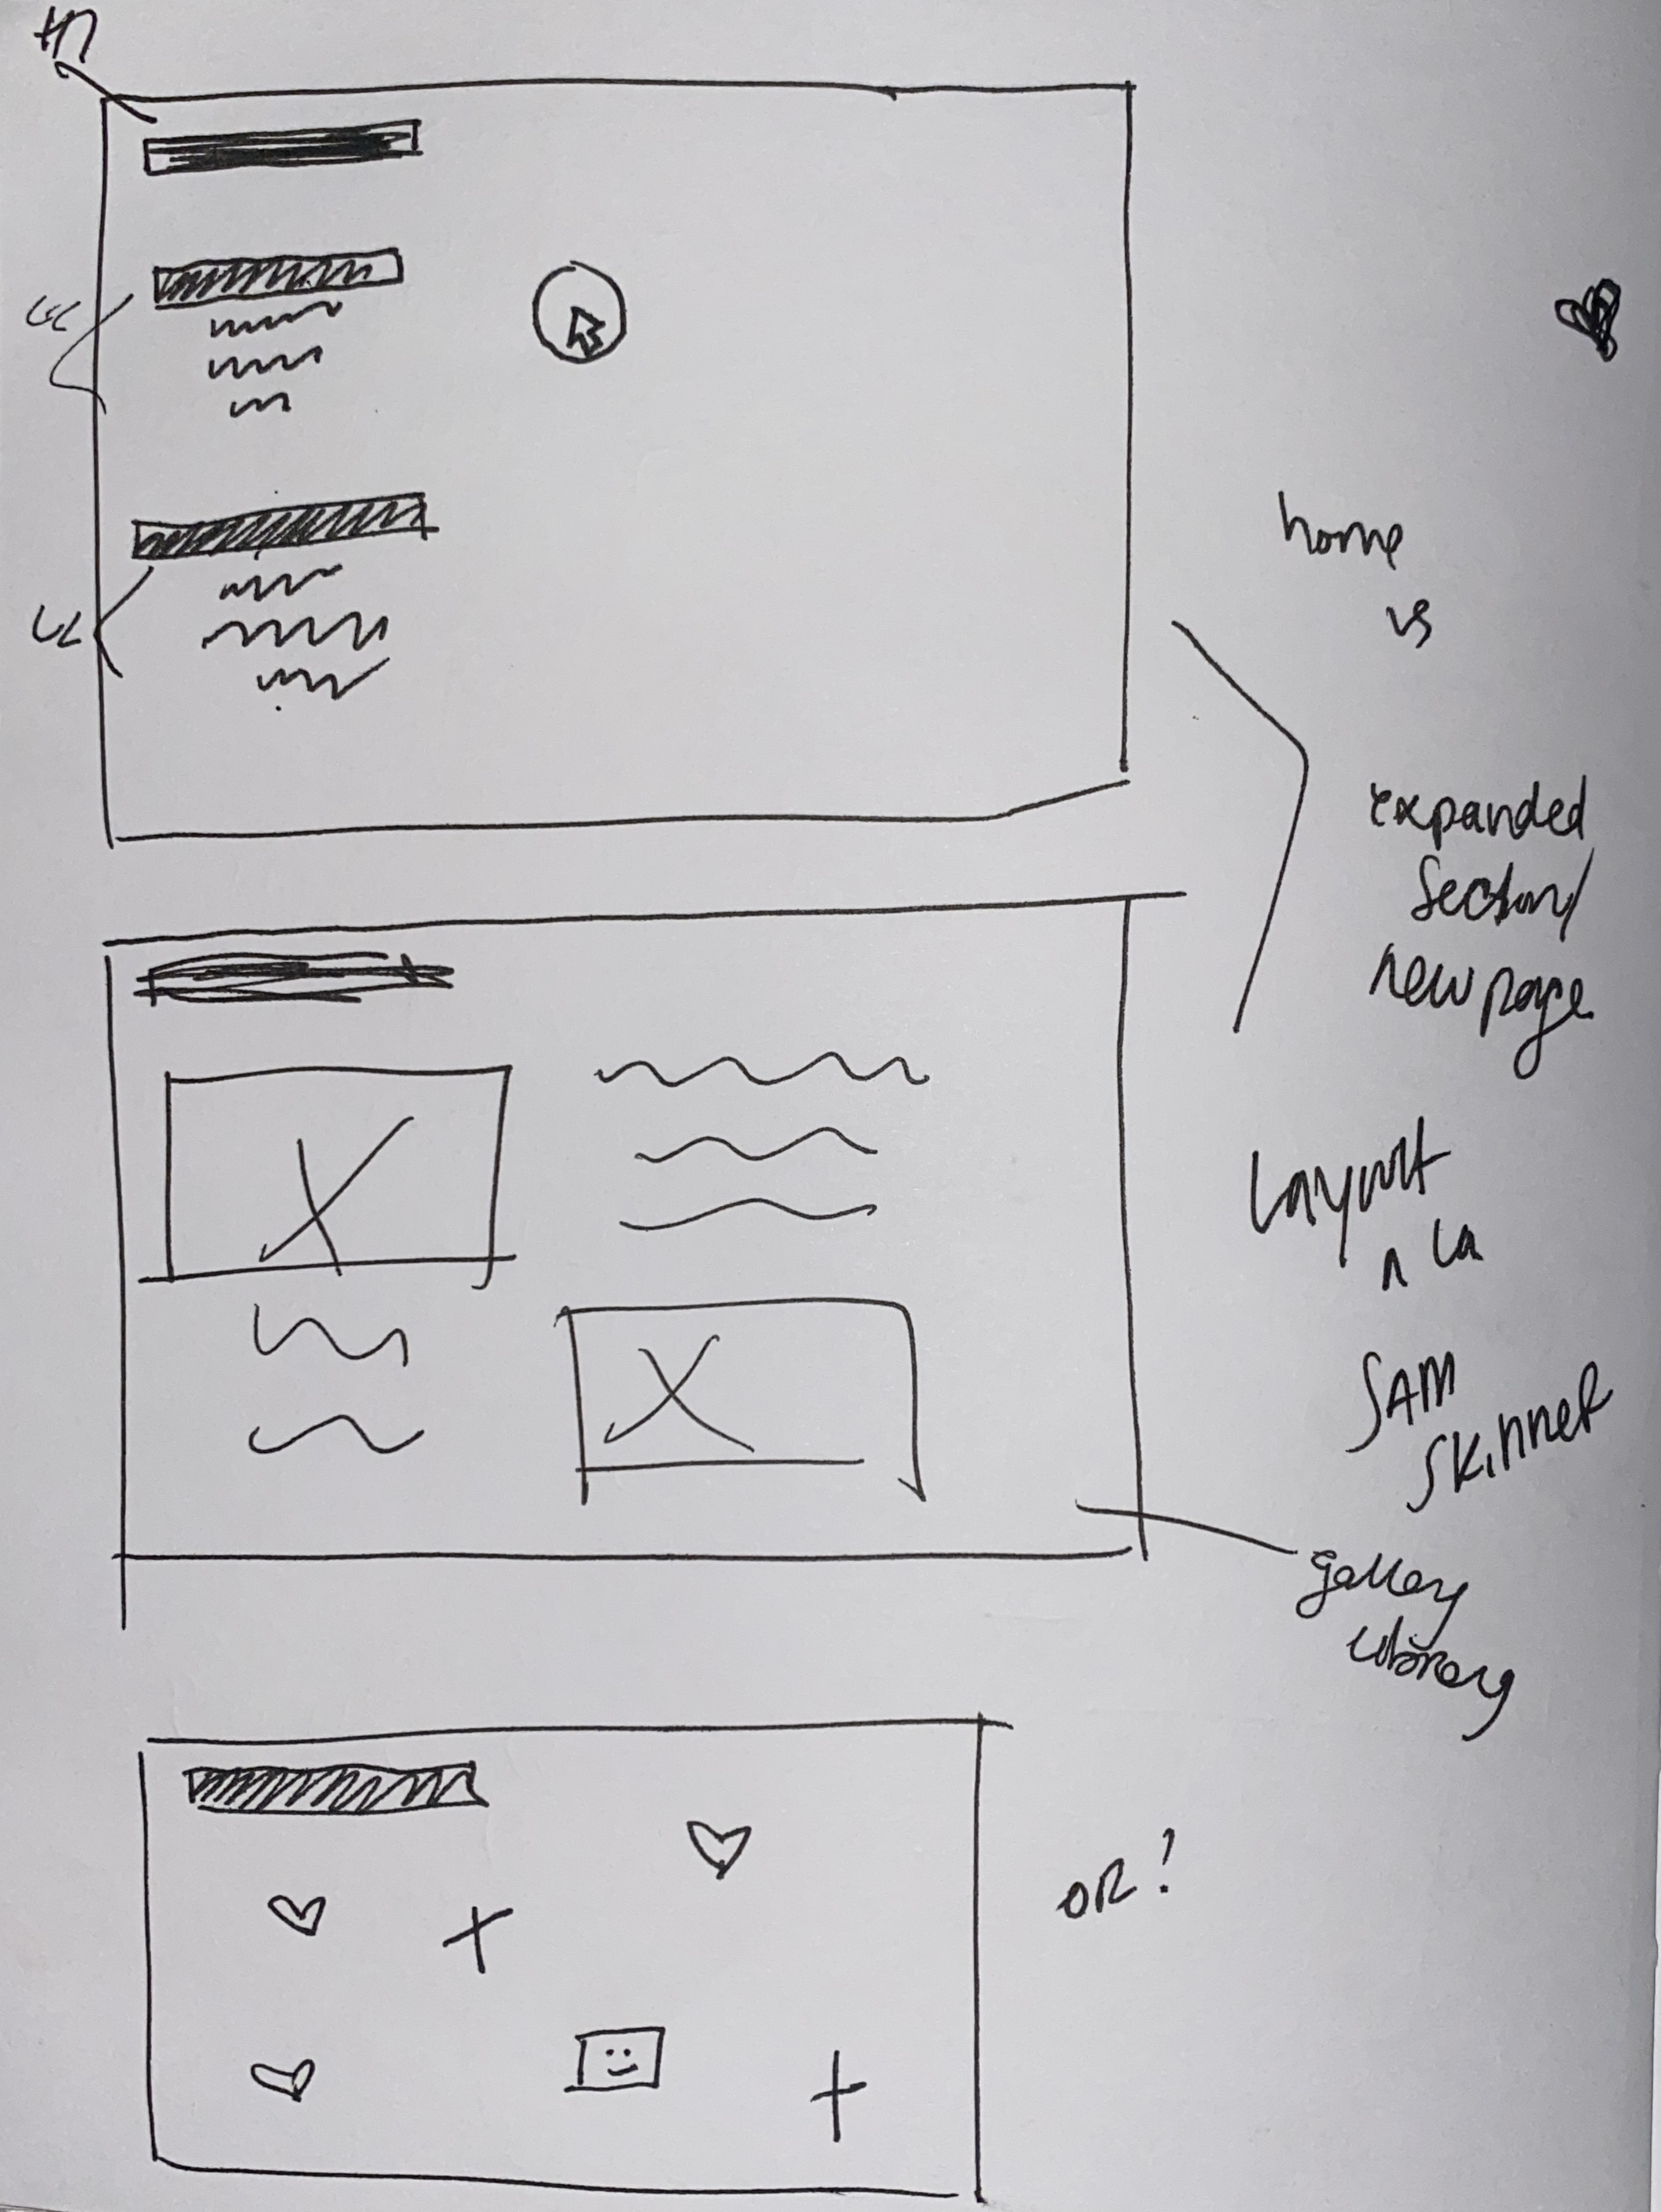 home
vs
expanded
section/
new page
Layout
a la
SAM
SKinneR
gallery
library
OR?